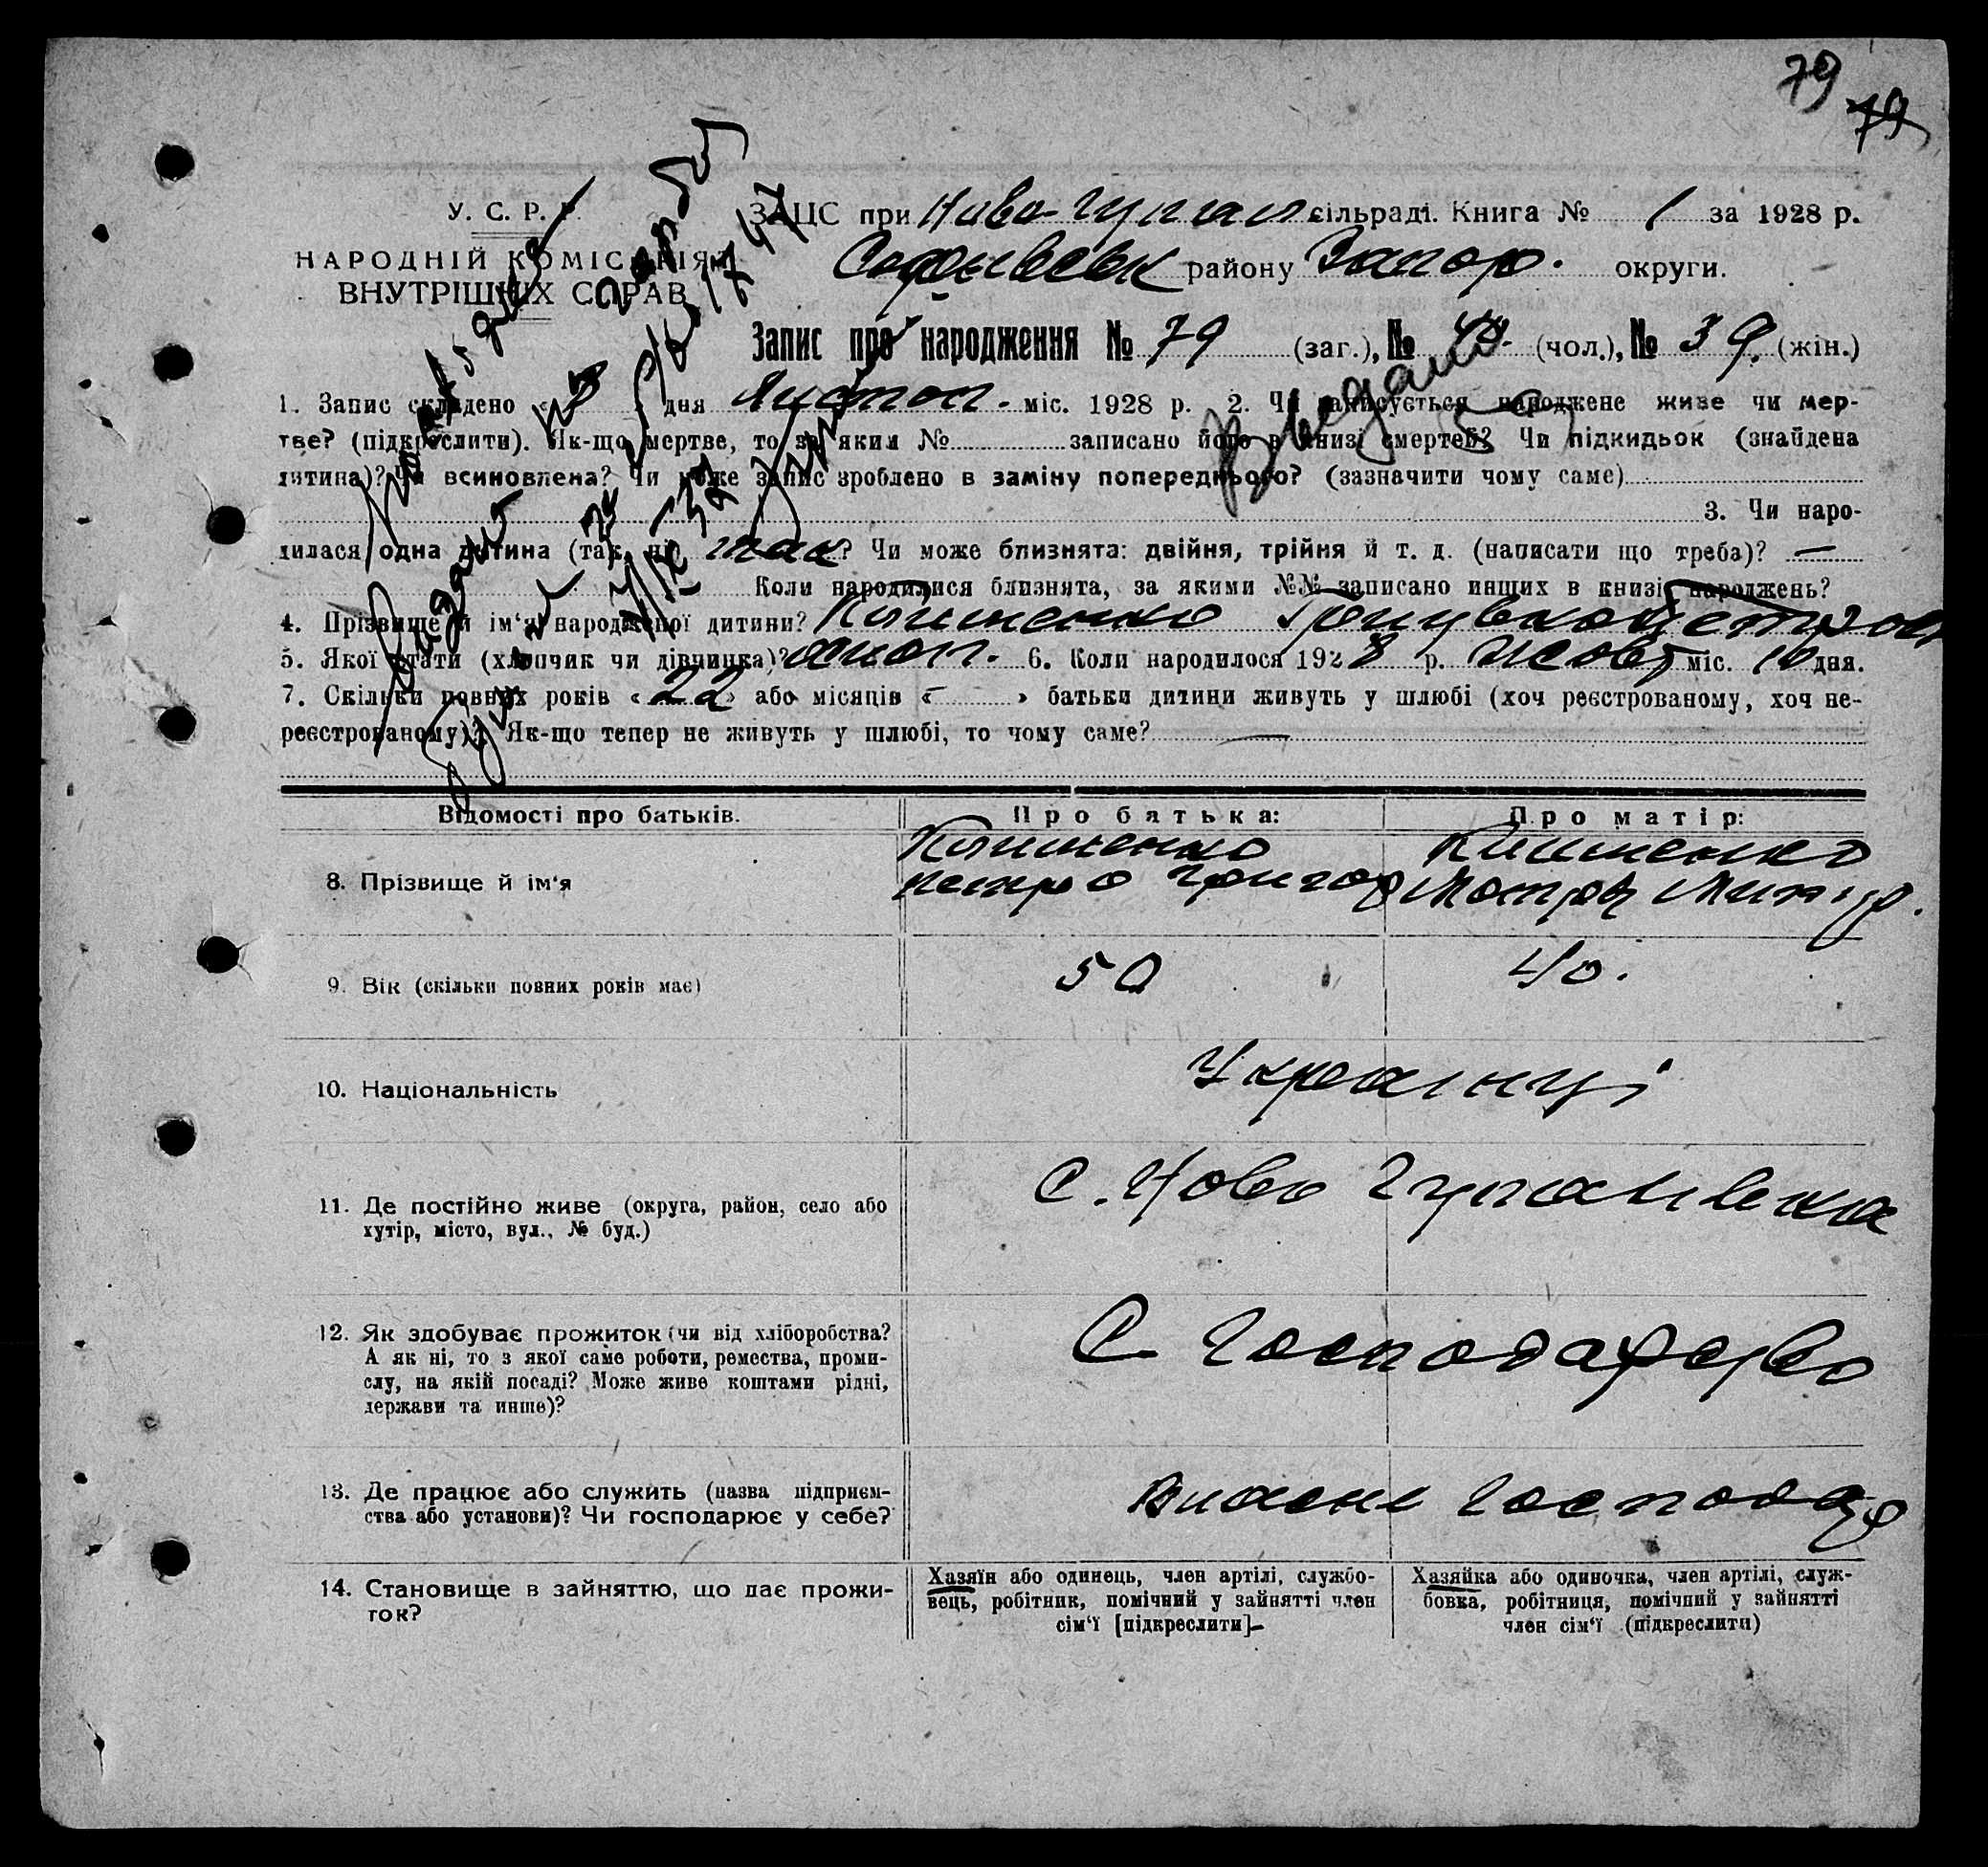 79
79
У. С. Р. Р.
НАРОДНІЙ КОМІСАРІЯТ
ВНУТРІШНІХ СПРАВ
ЗАЦС при Ново-Гупал сільраді. Книга № 1 за 1928 р.
Софіївськ району Запор. округи.
Запис про народження № 79 (заг.), № 40 (чол.), № 39. (жін.)
1. Запис складено « 8 » дня Листоп. міс. 1928 р. 2. Чи записується народжене живе чи мер-
тве? (підкреслити). Як-що мертве, то за яким № записано його в книзі смертей? Чи підкидьок (знайдена
дитина)? Чи всиновлена? Чи може запис зроблено в заміну попереднього? (зазначити чому саме)
3. Чи наро-
дилася одна дитина (так, ні) так? Чи може близнята: двійня, трійня й т. д. (написати що треба)? —
Коли народилися близнята, за якими №№ записано инших в книзі народжень?
4. Прізвище й ім'я народженої дитини? Клименко
5. Якої статі (хлопчик чи дівчинка)? хлоп. 6. Коли народилося 1928 р. Жовт міс. 16 дня.
7. Скільки повних років « 22 » або місяців « – » батьки дитини живуть у шлюбі (хоч реєстрованому, хоч не-
реєстрованому)? Як-що тепер не живуть у шлюбі, то чому саме? —
Відомості про батьків. Про батька: Про матір:
8. Прізвище й ім'я
Клименко Клименко
Петро Григор Мотря
9. Вік (скільки повних років має) 50 40.
10. Національність Українці
11. Де постійно живе (округа, район, село або
хутір, місто, вул., № буд.)
с. Ново Гупалівка
12. Як здобуває прожиток (чи від хліборобства?
А як ні, то з якої саме роботи, ремества, проми-
слу, на якій посаді? Може живе коштами рідні,
держави та инше)?
С. Господарство
13. Де працює або служить (назва підприєм-
ства або установи)? Чи господарює у себе?
Власне господар
14. Становище в зайняттю, що дає прожи-
ток?
Хазяїн або одинець, член артілі, службо-
вець, робітник, помічний у зайнятті член
сім'ї [підкреслити]
Хазяйка або одиночка, член артілі, служ-
бовка, робітниця, помічний у зайнятті
член сім'ї (підкреслити)